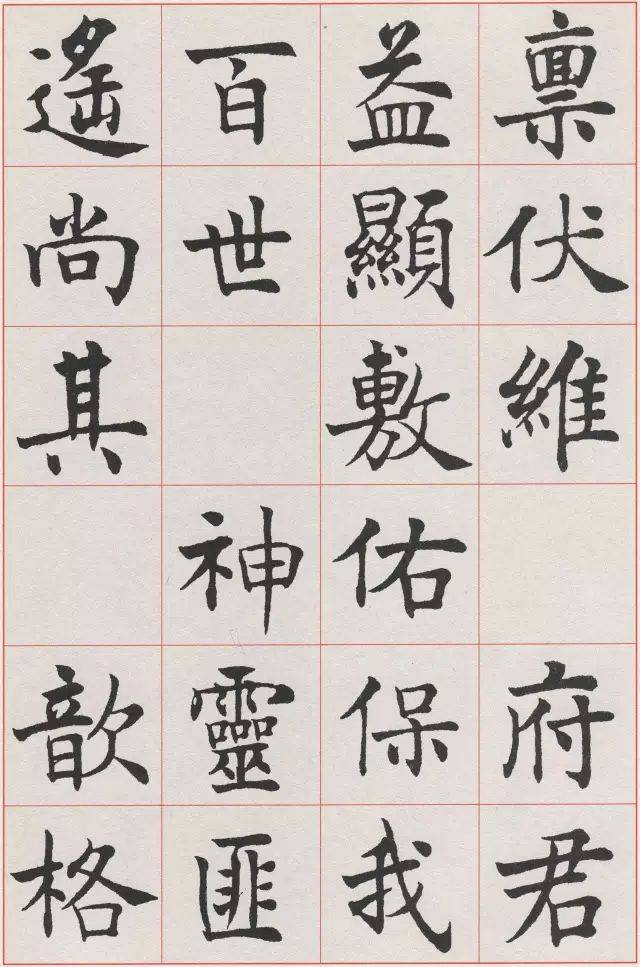 禀伏維府君
益顯敷佑保我
百世神靈匪
遙尚其歆格